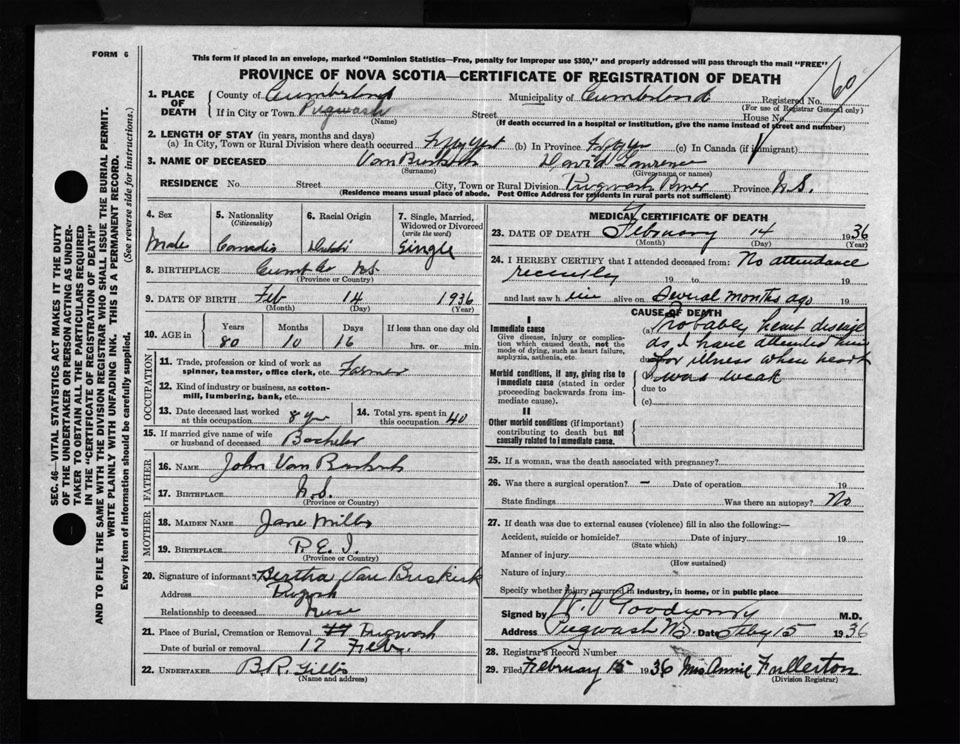 FORM 6
This form if placed in an envelope, marked "Dominion Statistics—Free, penalty for improper use $300," and properly addressed will pass through the mail "FREE"
PROVINCE OF NOVA SCOTIA—CERTIFICATE OF REGISTRATION OF DEATH
60
SEC. 46—VITAL STATISTICS ACT MAKES IT THE DUTY
OF THE UNDERTAKER OR PERSON ACTING AS UNDER-
TAKER TO OBTAIN ALL THE PARTICULARS REQUIRED
IN THE "CERTIFICATE OF REGISTRATION OF DEATH"
AND TO FILE THE SAME WITH THE DIVISION REGISTRAR WHO SHALL ISSUE THE BURIAL PERMIT.
WRITE PLAINLY WITH UNFADING INK. THIS IS A PERMANENT RECORD.
Every item of information should be carefully supplied. (See reverse side for instructions.)
1. PLACE OF DEATH
County of Cumberland Municipality of Cumberland Registered No.
(For use of Registrar General only)
If in City or Town Pugwash Street House No.
(Name) (If death occurred in a hospital or institution, give the name instead of street and number)
2. LENGTH OF STAY (in years, months and days)
(a) In City, Town or Rural Division where death occurred (b) In Province (c) In Canada (if immigrant)
3. NAME OF DECEASED Van Buskirk David Lawrence
(Surname) (Given name or names)
RESIDENCE No. Street City, Town or Rural Division Pugwash River Province N.S.
(Residence means usual place of abode. Post Office Address for residents in rural parts not sufficient)
4. Sex Male
5. Nationality (Citizenship)
6. Racial Origin
7. Single, Married, Widowed or Divorced (write the word) Single
8. BIRTHPLACE Cumb Co N.S.
(Province or Country)
9. DATE OF BIRTH Feb 14 1936
(Month) (Day) (Year)
10. AGE in Years 80 Months 10 Days 16 If less than one day old hrs. or min.
OCCUPATION
11. Trade, profession or kind of work as spinner, teamster, office clerk, etc. Farmer
12. Kind of industry or business, as cotton-mill, lumbering, bank, etc.
13. Date deceased last worked at this occupation 8 yr
14. Total yrs. spent in this occupation 40
15. If married give name of wife or husband of deceased Bachelor
FATHER
16. NAME John Van Buskirk
17. BIRTHPLACE N.S.
(Province or Country)
MOTHER
18. MAIDEN NAME Jane Mills
19. BIRTHPLACE P.E.I.
(Province or Country)
20. Signature of informant Bertha Van Buskirk
Address Pugwash
Relationship to deceased
21. Place of Burial, Cremation or Removal Pugwash
Date of burial or removal 17 Feb.
22. UNDERTAKER B.R.
(Name and address)
MEDICAL CERTIFICATE OF DEATH
23. DATE OF DEATH February 14 1936
(Month) (Day) (Year)
24. I HEREBY CERTIFY that I attended deceased from: No attendance
recently 19 to 19
and last saw h im alive on Several months ago 19
CAUSE OF DEATH
I
Immediate cause
Give disease, injury or complication which caused death, not the mode of dying, such as heart failure, asphyxia, asthenia, etc.
Morbid conditions, if any, giving rise to immediate cause (stated in order proceeding backwards from immediate cause).
II
Other morbid conditions (if important) contributing to death but not causally related to immediate cause.
(a) Probably heart disease
as, I have attended him
due to for illness whose heart
(b) was weak
due to
(c)
25. If a woman, was the death associated with pregnancy?
26. Was there a surgical operation? — Date of operation 19
State findings Was there an autopsy? No
27. If death was due to external causes (violence) fill in also the following:—
Accident, suicide or homicide? Date of injury 19
(State which)
Manner of injury
(How sustained)
Nature of injury
Specify whether injury occurred in industry, in home, or in public place
Signed by M.D.
Address Pugwash N.S. Date Feby 15 1936
28. Registrar's Record Number
29. Filed February 15 1936 Miss Annie Fullerton
(Division Registrar)